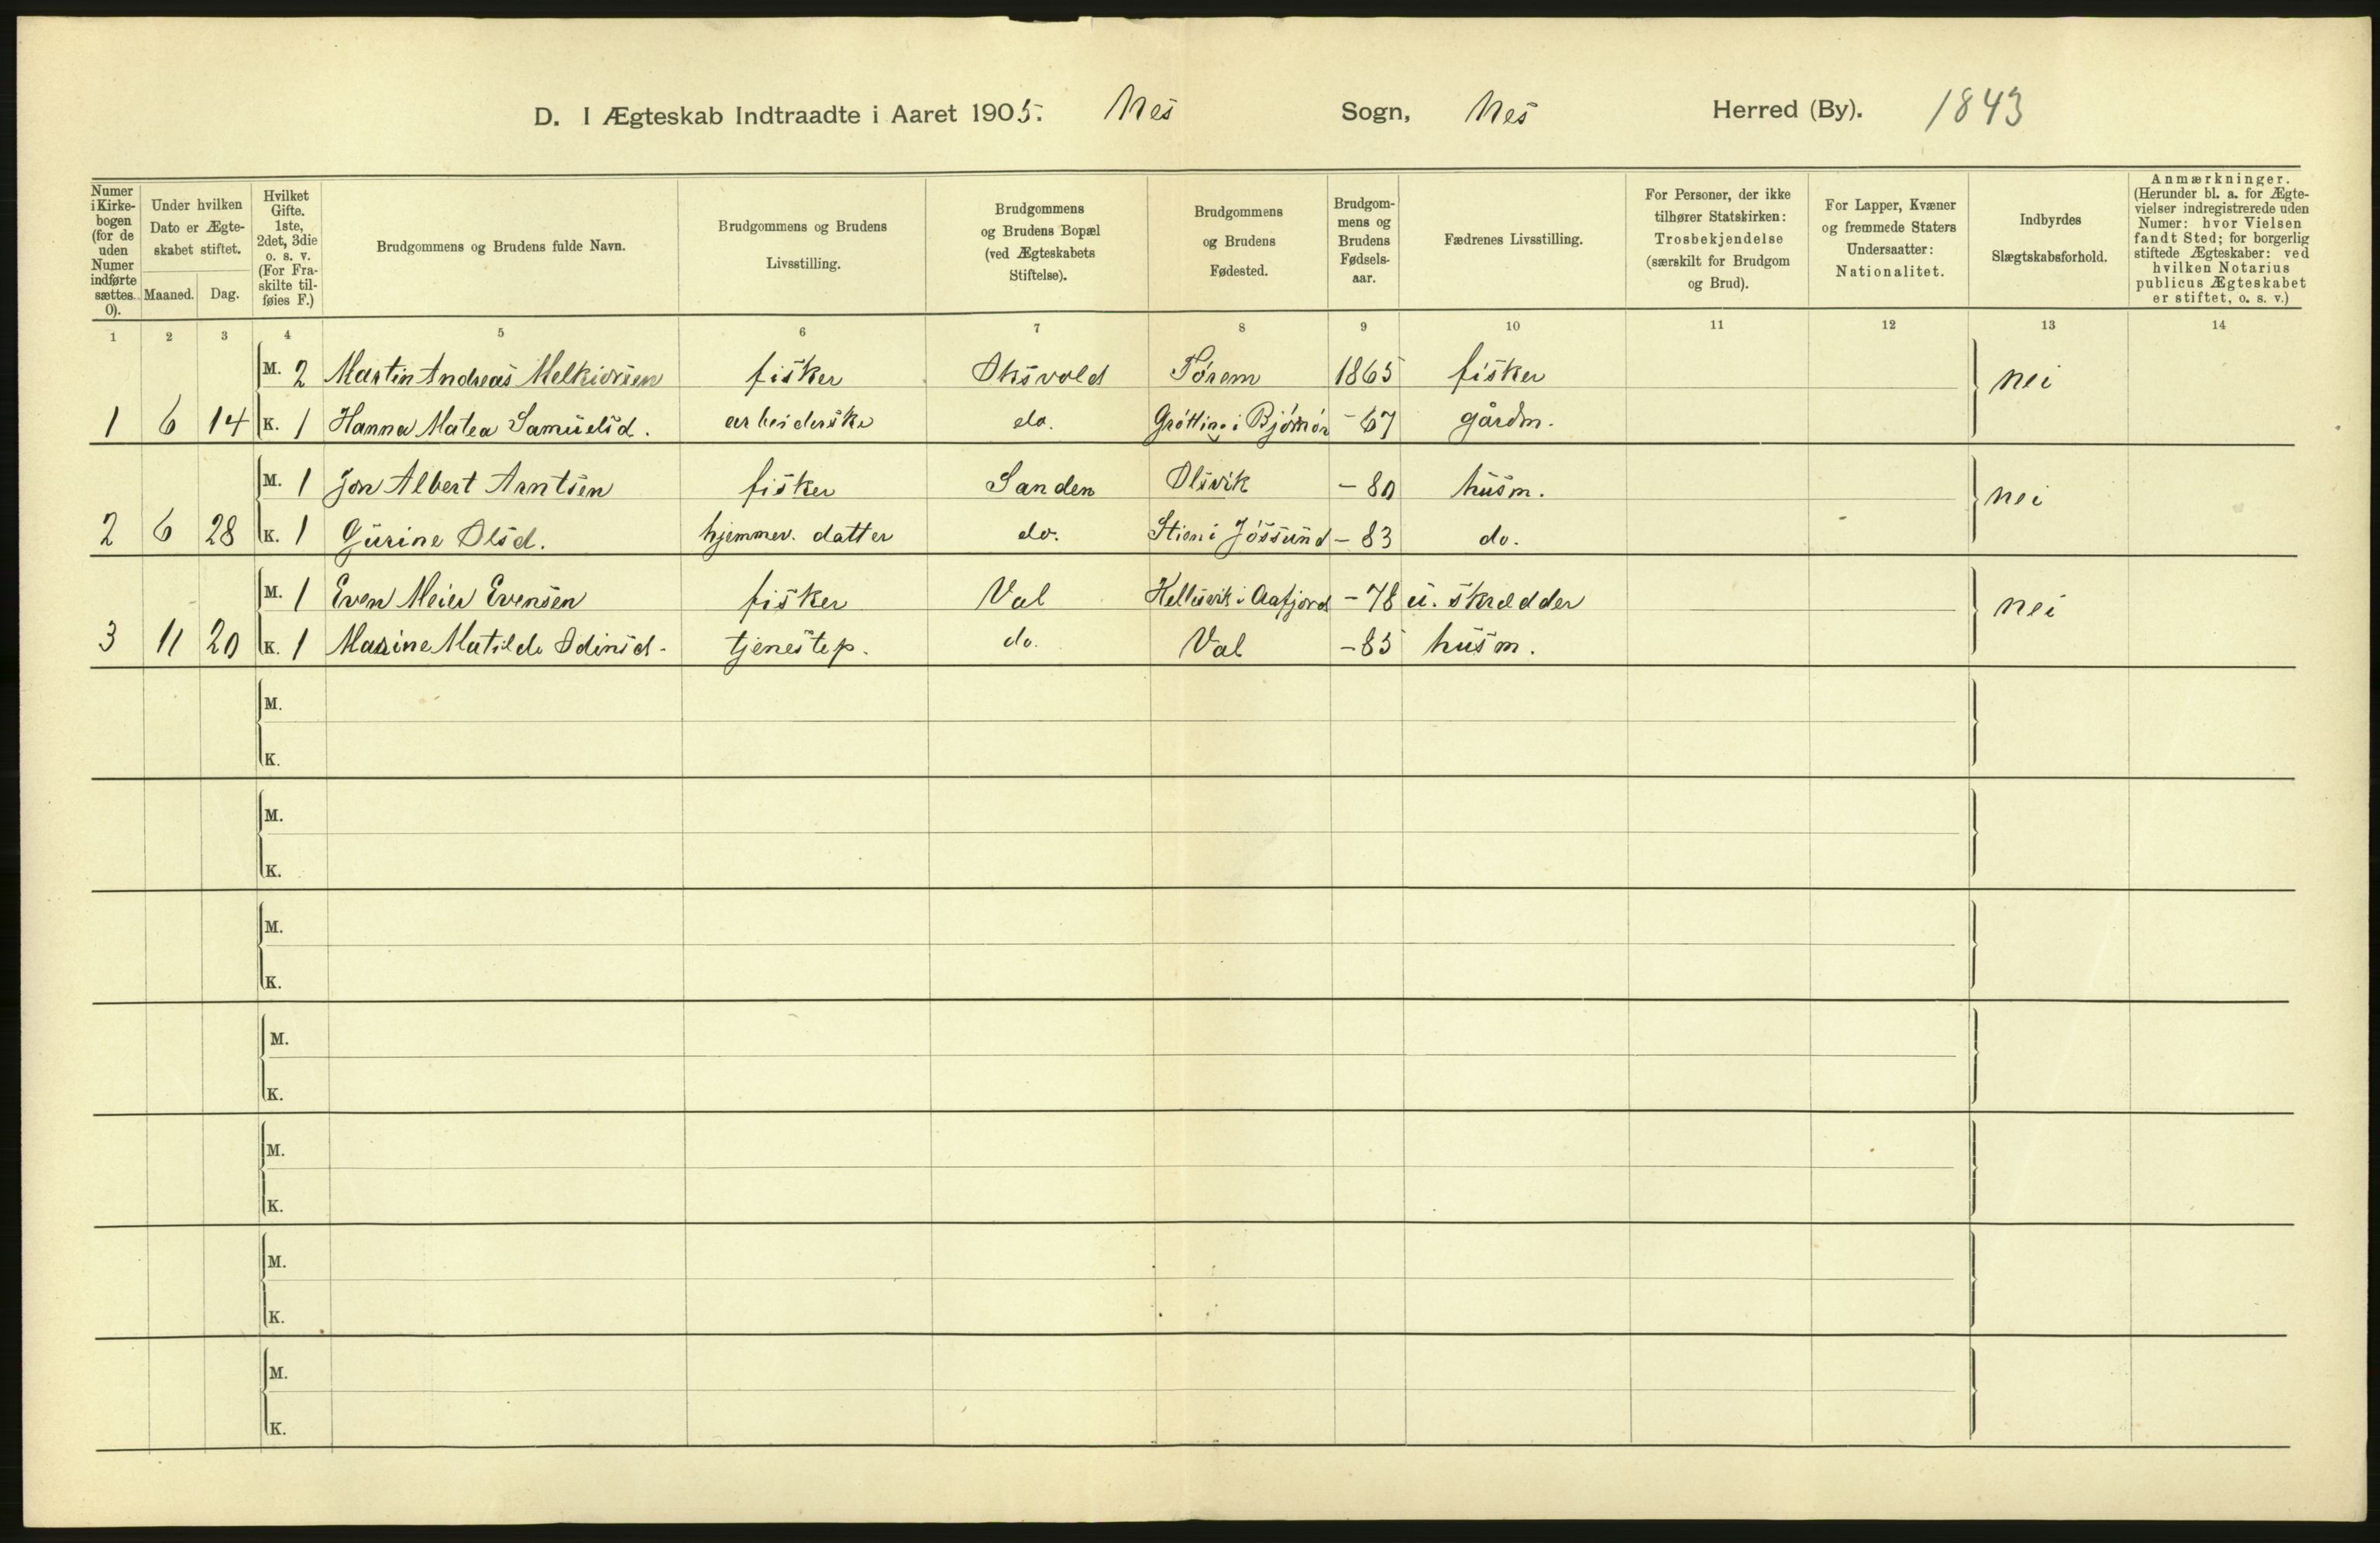 D. I Ægteskab Indtraadte i Aaret 1905. Nes Sogn, Nes Herred (By). 1843
Numer i Kirke-bogen (for de uden Numer indførte sættes 0).
Under hvilken Dato er Ægte-skabet stiftet.
Maaned. Dag.
Hvilket Gifte. 1ste, 2det, 3die o. s. v. (For Fra-skilte til-føies F.)
Brudgommens og Brudens fulde Navn.
Brudgommens og Brudens Livsstilling.
Brudgommens og Brudens Bopæl (ved Ægteskabets Stiftelse).
Brudgommens og Brudens Fødested.
Brudgom-mens og Brudens Fødsels-aar.
Fædrenes Livsstilling.
For Personer, der ikke tilhører Statskirken: Trosbekjendelse (særskilt for Brudgom og Brud).
For Lapper, Kvæner og fremmede Staters Undersaatter: Nationalitet.
Indbyrdes Slægtskabsforhold.
Anmærkninger. (Herunder bl. a. for Ægte-vielser indregistrerede uden Numer: hvor Vielsen fandt Sted; for borgerlig stiftede Ægteskaber: ved hvilken Notarius publicus Ægteskabet er stiftet, o. s. v.)
1 2 3 4 5 6 7 8 9 10 11 12 13 14
M. 2 Martin Andreas Melkiorsen fisker Oksvold Tørem 1865 fisker nei
1 6 14 K. 1 Hanna Matea Samuelsd. arbeiderske do. Grøtting i Bjørnør - 67 gårdm.
M. 1 Jon Albert Arntsen fisker Sanden Olsvik - 80 husm. nei
2 6 28 K. 1 Gurine Olsd. hjemmev. datter do. Stien i Jøssund - 83 do.
M. 1 Even Meier Evensen fisker Val Hellesvik i Aafjord - 78 u. skredder nei
3 11 20 K. 1 Masine Matilde Odinsd. tjenestep. do. Val - 85 husm.
M.
K.
M.
K.
M.
K.
M.
K.
M.
K.
M.
K.
M.
K.